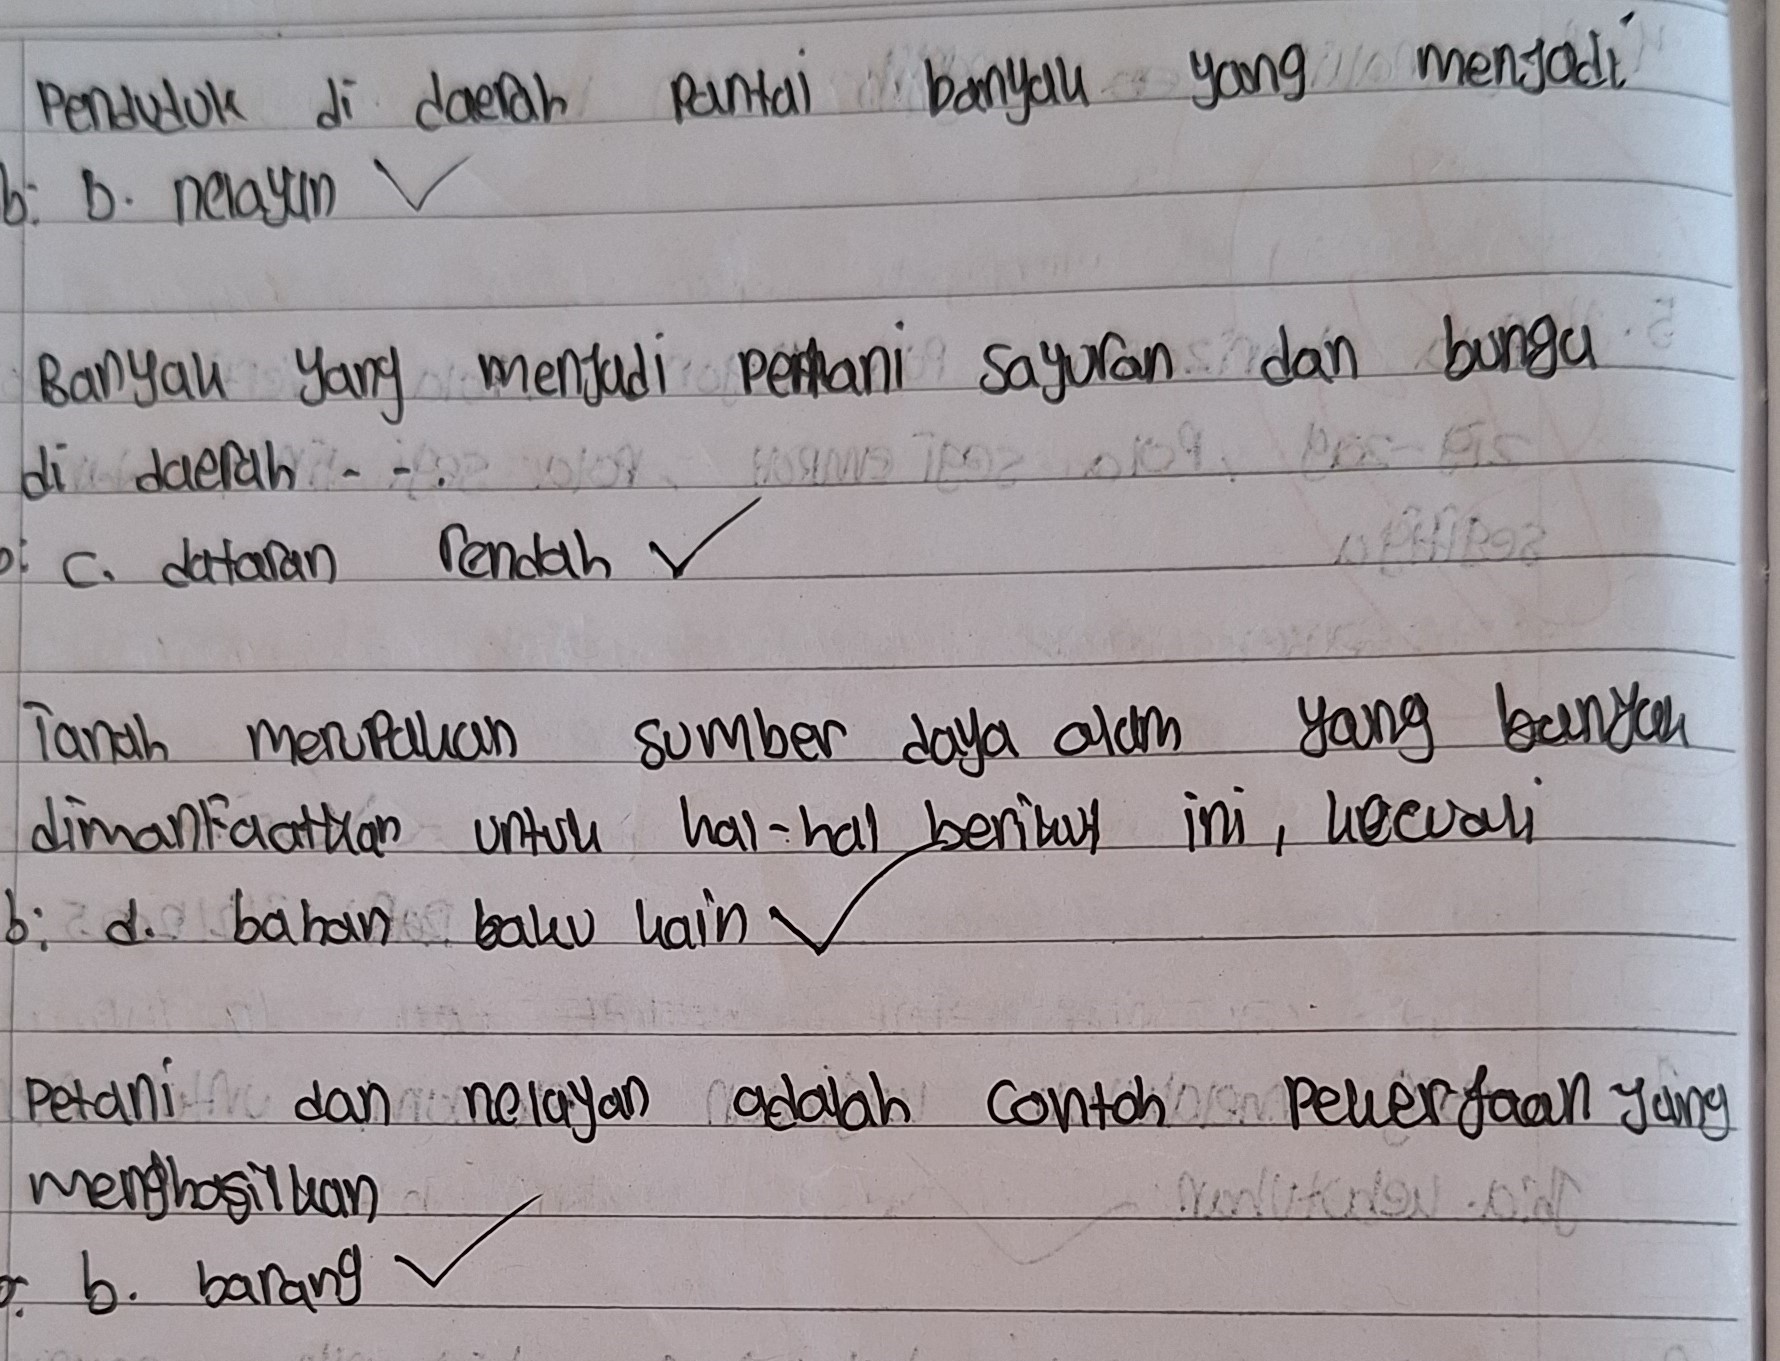 Penduduk di daerah Pantai banyak yang menjadi
b: b. nelayan
Banyak yang menjadi pertani sayuran dan bunga
di daerah - - .
b: c. dataran rendah
Tanah merupakan sumber daya alam yang banyak
dimanfaatkan untuk hal-hal berikut ini, kecuali
b: d. bahan baku kain
Petani dan nelayan adalah contoh Pekerjaan yang
menghasilkan
b. barang